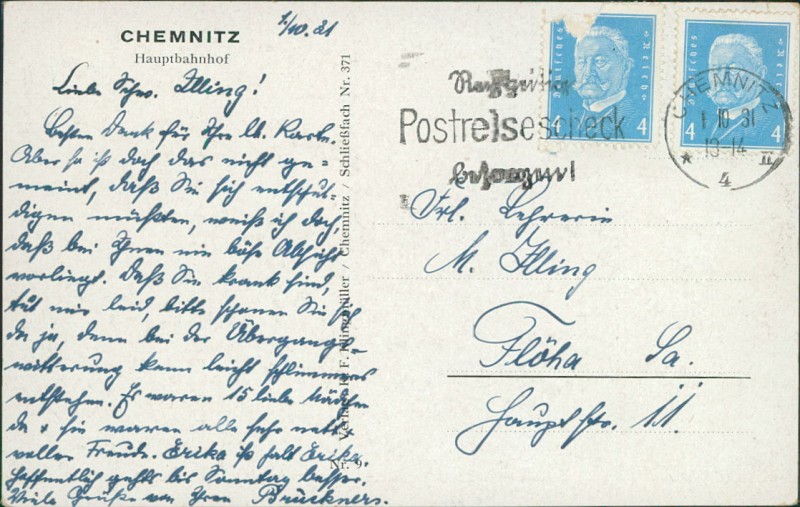 CHEMNITZ
Hauptbahnhof
1/10.31
Liebe Schw. Illing!
Besten Dank für Ihre lb. Karte.
Aber so ist doch das nicht ge-
meint, daß Sie sich entschul-
digen müßten, weiß ich doch,
daß bei Ihnen nie böse Absicht
vorliegt. Daß Sie krank sind,
tut mir leid, bitte schonen Sie sich
da ja, denn bei der Übergangs-
witterung kann leicht schlimmeres
entstehen. Es waren 15 liebe Mädchen
da + sie waren alle sehr nett +
voller Freude. Erika ist halt Erika.
Hoffentlich gehts bis Sonntag besser.
Viele Grüße von Ihren Brückners.
Verlag F. Klingmüller / Chemnitz / Schließfach Nr. 371
Nr. 9
Deutsches Reich
4 4
Deutsches Reich
4 4
Rechtzeitig
Postreisescheck
besorgen!
CHEMNITZ
1 10 31
13-14
* 4 II
Frl. Lehrerin
M. Illing
Flöha Sa.
Hauptstr. 11.